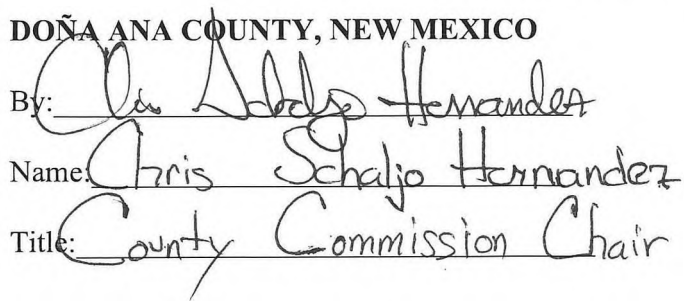 DOÑA ANA COUNTY, NEW MEXICO
By: Hernandez
Name: Chris Schaljo Hernandez
Title: County Commission Chair